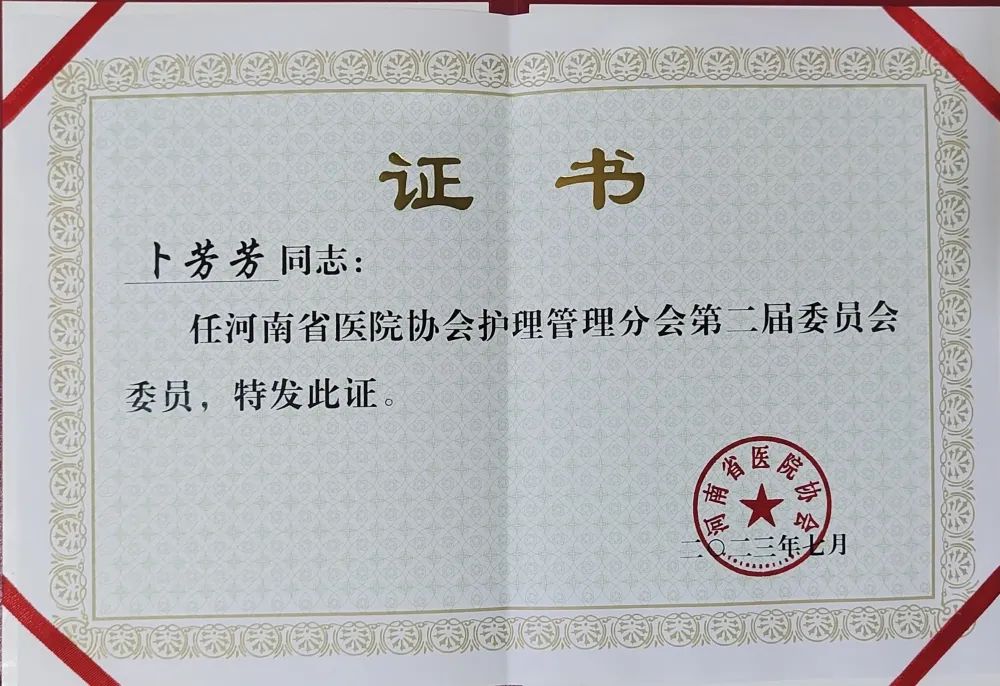 证 书
卜芳芳 同志：
任河南省医院协会护理管理分会第二届委员会
委员，特发此证。
河南省医院协会
二〇二三年七月